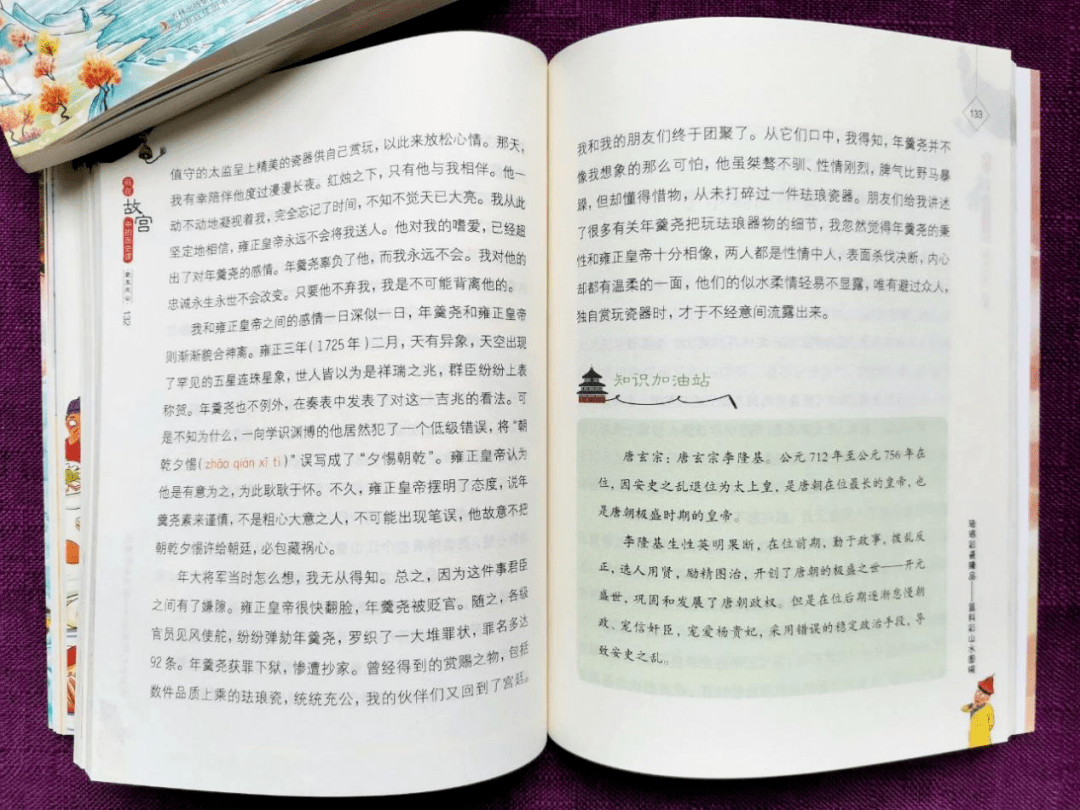 值守的太监呈上精美的瓷器供自己赏玩，以此来放松心情。那天，
我有幸陪伴他度过漫漫长夜。红烛之下，只有他与我相伴。他一
动不动地凝视着我，完全忘记了时间，不知不觉天已大亮。我从此
坚定地相信，雍正皇帝永远不会将我送人。他对我的嗜爱，已经超
出了对年羹尧的感情。年羹尧辜负了他，而我永远不会。我对他的
忠诚永生永世不会改变。只要他不弃我，我是不可能背离他的。
我和雍正皇帝之间的感情一日深似一日，年羹尧和雍正皇帝
则渐渐貌合神离。雍正三年（1725年）二月，天有异象，天空出现
了罕见的五星连珠星象，世人皆以为是祥瑞之兆，群臣纷纷上表
称贺。年羹尧也不例外，在奏表中发表了对这一吉兆的看法。可
是不知为什么，一向学识渊博的他居然犯了一个低级错误，将“朝
乾夕惕（zhāo qián xī tì）”误写成了“夕惕朝乾”。雍正皇帝认为
他是有意为之，为此耿耿于怀。不久，雍正皇帝摆明了态度，说年
羹尧素来谨慎，不是粗心大意之人，不可能出现笔误，他故意不把
朝乾夕惕许给朝廷，必包藏祸心。
年大将军当时怎么想，我无从得知。总之，因为这件事君臣
之间有了嫌隙。雍正皇帝很快翻脸，年羹尧被贬官。随之，各级
官员见风使舵，纷纷弹劾年羹尧，罗织了一大堆罪状，罪名多达
92条。年羹尧获罪下狱，惨遭抄家。曾经得到的赏赐之物，包括
数件品质上乘的珐琅瓷，统统充公，我的伙伴们又回到了宫廷。
故宫
中的历史课
132
133
我和我的朋友们终于团聚了。从它们口中，我得知，年羹尧并不
像我想象的那么可怕，他虽桀骜不驯、性情刚烈，脾气比野马暴
躁，但却懂得惜物，从未打碎过一件珐琅瓷器。朋友们给我讲述
了很多有关年羹尧把玩珐琅器物的细节，我忽然觉得年羹尧的秉
性和雍正皇帝十分相像，两人都是性情中人，表面杀伐决断，内心
却都有温柔的一面，他们的似水柔情轻易不显露，唯有避过众人，
独自赏玩瓷器时，才于不经意间流露出来。
知识加油站
唐玄宗：唐玄宗李隆基。公元712年至公元756年在
位，因安史之乱退位为太上皇，是唐朝在位最长的皇帝，也
是唐朝极盛时期的皇帝。
李隆基生性英明果断，在位前期，勤于政事。拨乱反
正，选人用贤，励精图治，开创了唐朝的极盛之世——开元
盛世，巩固和发展了唐朝政权。但是在位后期逐渐怠慢朝
政、宠信奸臣，宠爱杨贵妃，采用错误的稳定政治手段，导
致安史之乱。